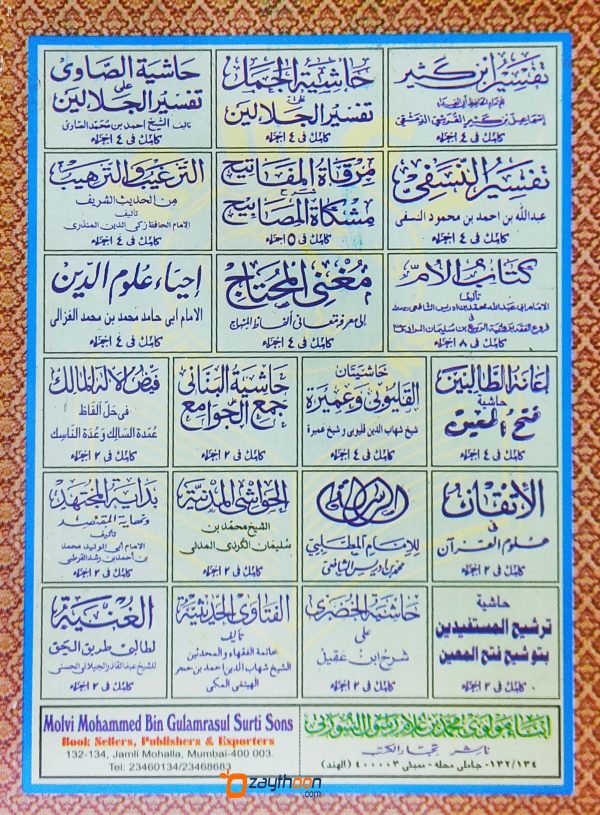 تفسير ابن كثير
للامام الحافظ أبو الفداء
إسماعيل بن كثير القرشي الدمشقي
كامل فى ٤ اجزاء
حاشية الجمل
على
تفسير الجلالين
كامل فى ٤ اجزاء
حاشية الصاوى
على
تفسير الجلالين
تاليف الشيخ احمد بن محمد الصاوى
كامل فى ٤ اجزاء
تفسير النسفى
عبدالله بن احمد بن محمود النسفى
كامل فى ٤ اجزاء
مرقاة المفاتيح
شرح
مشكاة المصابيح
كامل فى ٥ اجزاء
الترغيب والترهيب
من الحديث الشريف
تاليف
الامام الحافظ زكى الدين المنذرى
كامل فى ٤ اجزاء
كتاب الأم
تأليف
الامام ابى عبد الله محمد بن ادريس الشافعى
فى
فروع الفقه برواية الربيع بن سليمان المرادى
كامل فى ٨ اجزاء
مغنى المحتاج
إلى معرفة معانى ألفاظ المنهاج
كامل فى ٤ اجزاء
إحياء علوم الدين
الامام ابى حامد محمد بن محمد الغزالى
كامل فى ٤ اجزاء
إعانة الطالبين
حاشية
فتح المعين
كامل فى ٤ اجزاء
حاشيتان
القليوبى وعميرة
شيخ شهاب الدين قليوبى و شيخ عميرة
كامل فى ٤ اجزاء
حاشية البنانى
على
جمع الجوامع
كامل فى ٢ اجزاء
فيض الاله المالك
فى حل الفاظ
عمدة السالك وعدة الناسك
كامل فى ٢ اجزاء
الإتقان
فى
علوم القرآن
كامل فى ٢ اجزاء
الرسالة
للإمام المطلبي
محمد بن ادريس الشافعى
الحواشى المدنية
الشيخ محمد بن
سليمان الكردى المدنى
كامل فى ٢ اجزاء
بداية المجتهد
ونهاية المقتصد
تأليف
الامام أبى الوليد محمد
بن احمد بن رشد القرطبى
كامل فى ٢ اجزاء
حاشية
ترشيح المستفيدين
بتوشيح فتح المعين
كامل فى ٢ اجزاء
حاشية الخضرى
على
شرح ابن عقيل
كامل فى ٢ اجزاء
الفتاوى الحديثية
تأليف
خاتمة الفقهاء و المحدثين
الشيخ شهاب الدين احمد بن حجر
الهيتمى المكى
الغنية
لطالبى طريق الحق
للشيخ عبدالقادر الجيلانى الحسنى
كامل فى ٢ اجزاء
Molvi Mohammed Bin Gulamrasul Surti Sons
Book Sellers, Publishers & Exporters
132-134, Jamli Mohalla, Mumbai-400 003.
Tel: 23460134/23468683
ابناء مولوى محمد بن غلام رسول السورتى
ناشر تجار الكتب
١٣٢/١٣٤- جاملى محله - ممبئى ٤٠٠٠٠٣ (الهند)
zaythoon
.com